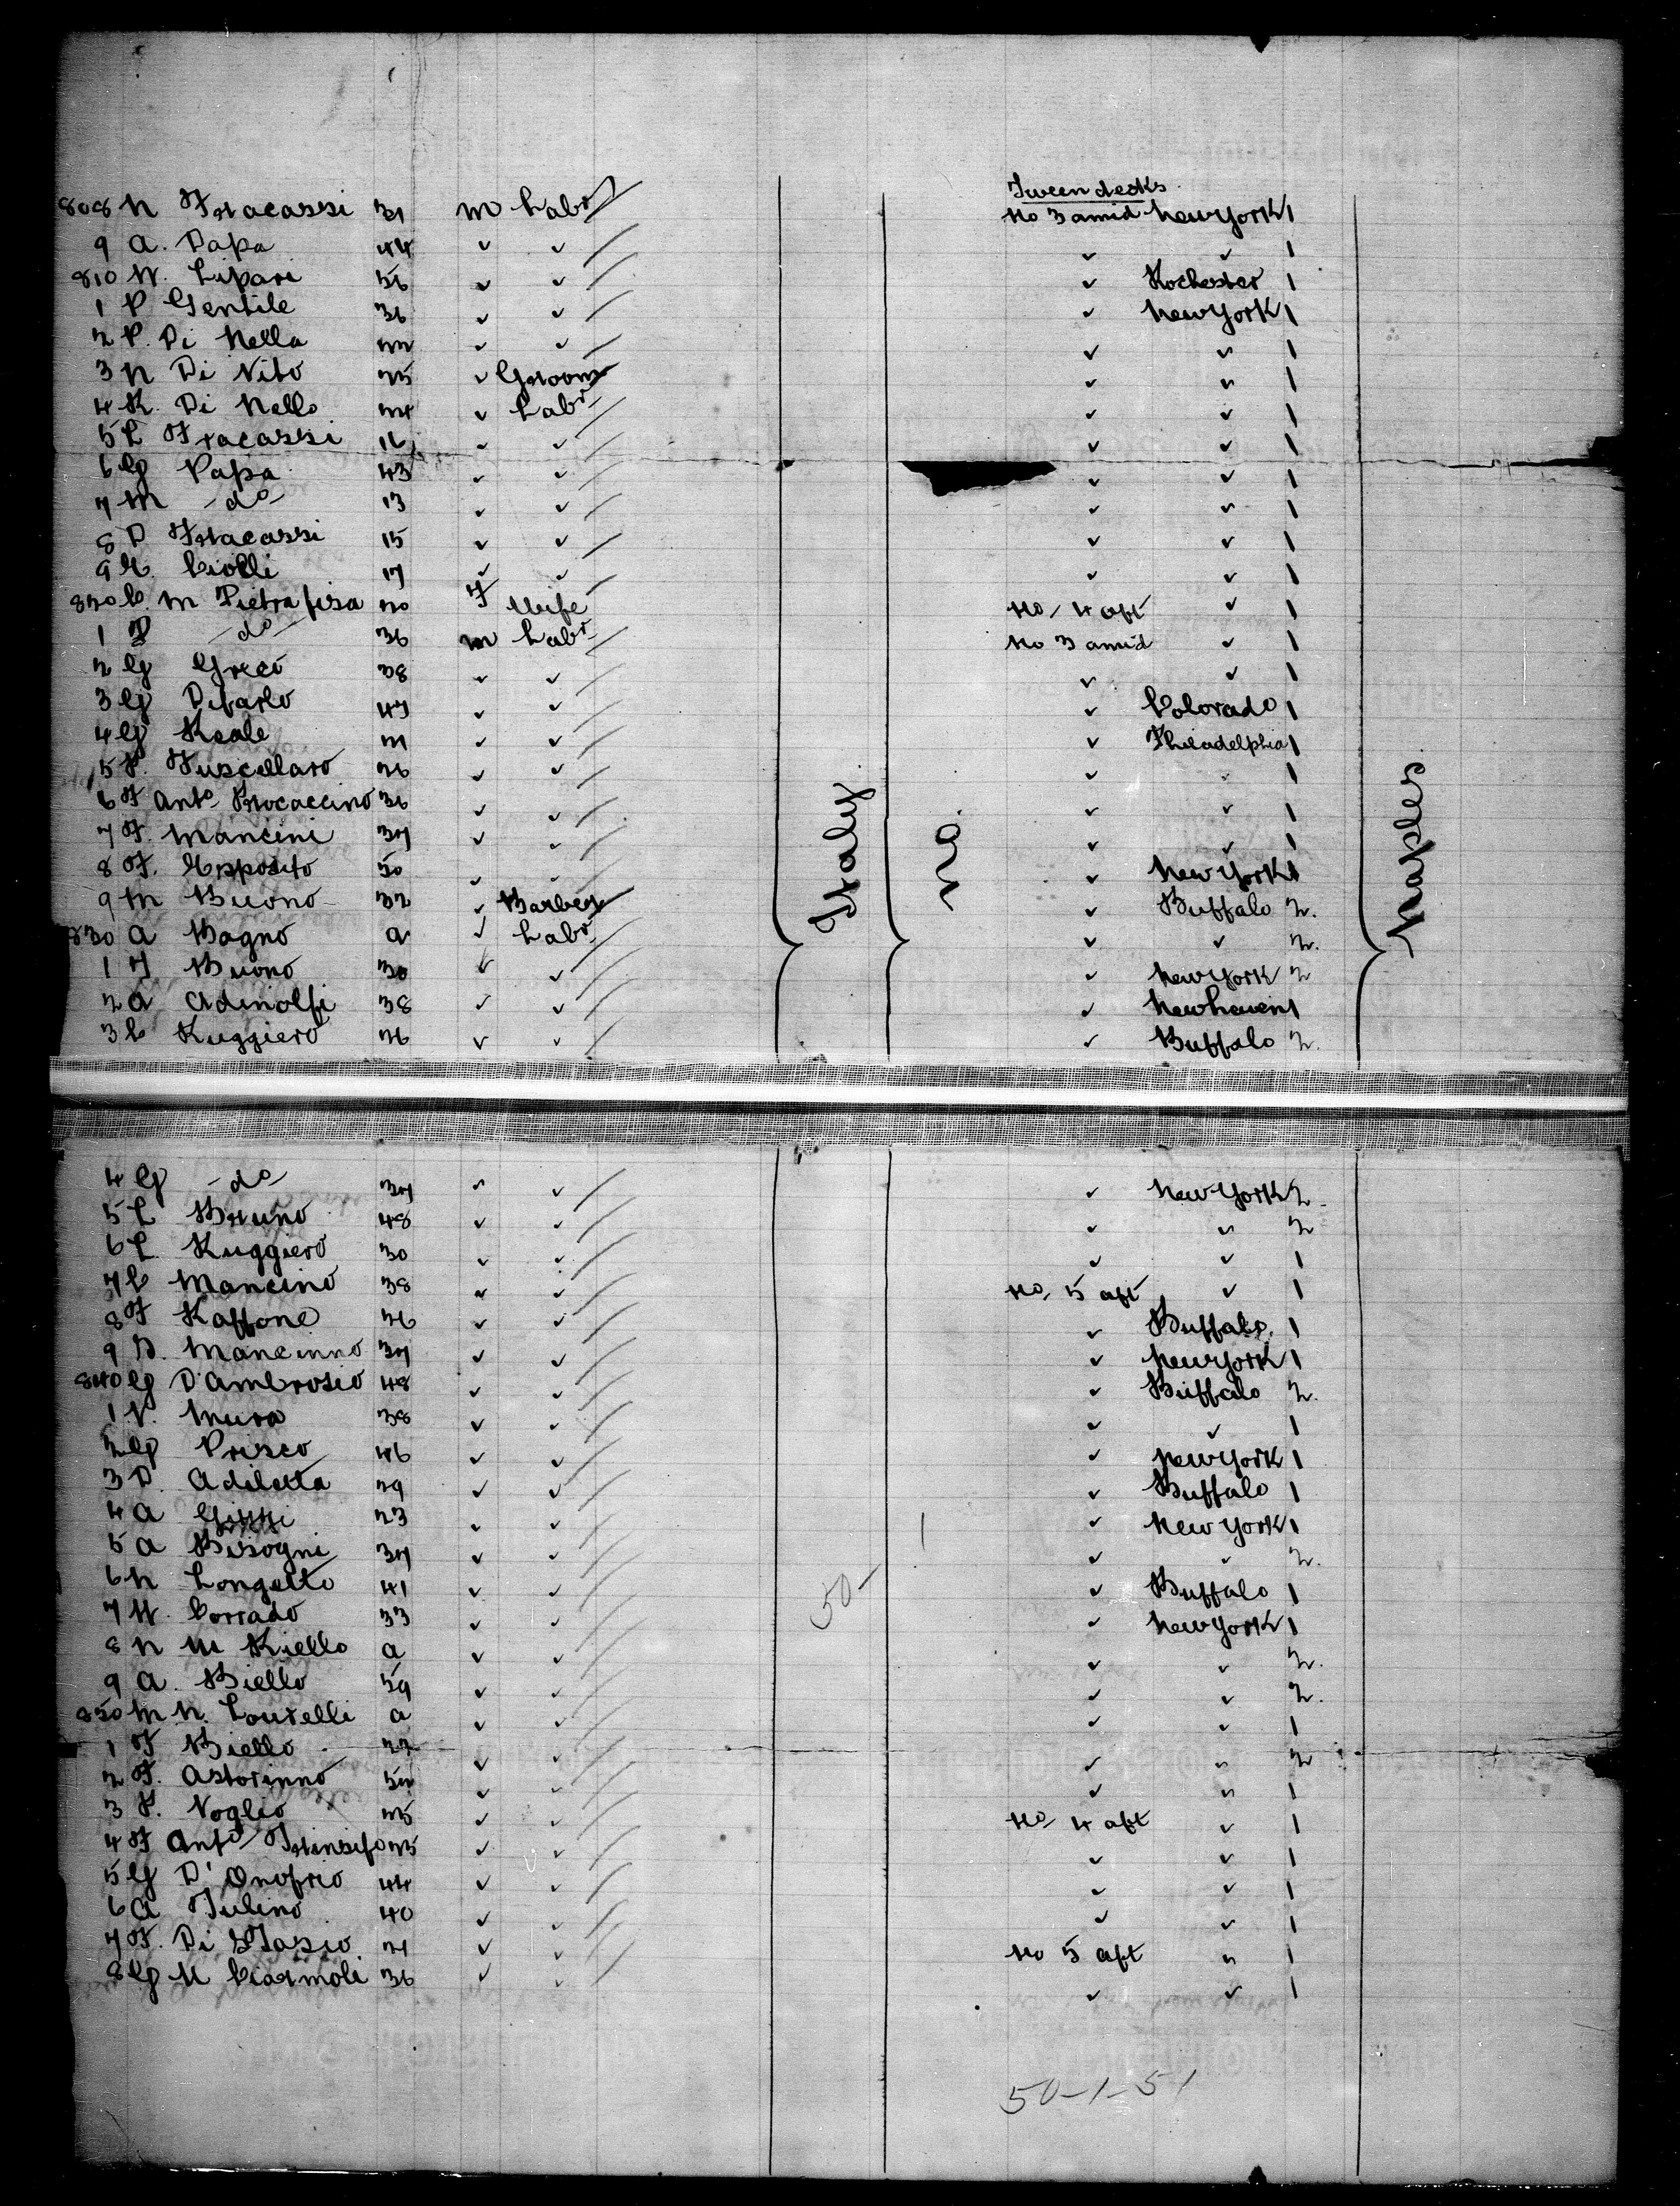 Tween decks
808 N Fracassi 31 M Labr No 3 amid New York 1
9 A. Papa 44 ✓ ✓ ✓ ✓ 1
810 N. Lipari 56 ✓ ✓ ✓ Rochester 1
1 P Gentile 36 ✓ ✓ ✓ New York 1
2 P. Di Nella 22 ✓ ✓ ✓ ✓ 1
3 N Di Vito 25 ✓ Groom ✓ ✓ 1
4 R. Di Nello 24 ✓ Labr ✓ ✓ 1
5 L Fracassi 16 ✓ ✓ ✓ ✓ 1
6 G Papa 43 ✓ ✓ ✓ ✓ 1
7 M -do- 13 ✓ ✓ ✓ ✓ 1
8 D Fracassi 15 ✓ ✓ ✓ ✓ 1
9 E. Ciolli 17 ✓ ✓ ✓ ✓ 1
820 C. M Pietrafesa 20 F Wife No 4 aft ✓ 1
1 -do- 36 M Labr No 3 amid ✓ 1
2 G Greco 38 ✓ ✓ ✓ ✓ 1
3 G Dicarlo 47 ✓ ✓ ✓ Colorado 1
4 G Reale ✓ ✓ ✓ Philadelphia 1
5 P. Fuscellaro 26 ✓ ✓ ✓ ✓ 1
6 F Anto Procaccino 36 ✓ ✓ ✓ ✓ 1
7 F. Mancini 37 ✓ ✓ ✓ ✓ 1
8 F. Esposito 50 ✓ ✓ ✓ New York 1
9 M Buono 32 ✓ Barber ✓ Buffalo 2.
830 A Bagno a ✓ Labr ✓ ✓ 2.
1 F Buono 30 ✓ ✓ ✓ New York 2
2 A Adinolfi 38 ✓ ✓ ✓ New haven 1
3 C Ruggiero 26 ✓ ✓ ✓ Buffalo 2.
Italy
no.
Naples
4 G -do- 37 ✓ ✓ ✓ New York 2.
5 L Bruno 48 ✓ ✓ ✓ ✓ 2
6 L Ruggiero 30 ✓ ✓ ✓ ✓ 1
7 C Mancino 38 ✓ ✓ No 5 aft ✓ 1
8 F Raffone 26 ✓ ✓ ✓ Buffalo 1
9 D. Mancinno 37 ✓ ✓ ✓ New York 1
840 G D'Ambrosio 48 ✓ ✓ ✓ Buffalo 2.
1 V. Mura 38 ✓ ✓ ✓ ✓ 1
2 G Prisco 46 ✓ ✓ ✓ New York 1
3 D. Adiletta 29 ✓ ✓ ✓ Buffalo 1
4 A 23 ✓ ✓ ✓ New York 1
5 A Bisogni 37 ✓ ✓ ✓ ✓ 2.
6 N Longetto 41 ✓ ✓ ✓ Buffalo 1
7 N. Corrado 33 ✓ ✓ ✓ New York 1
8 N M Riello a ✓ ✓ ✓ ✓ 2.
9 A. Biello 59 ✓ ✓ ✓ ✓ 2.
850 M N. Lourelli a ✓ ✓ ✓ ✓ 1
1 F Biello 22 ✓ ✓ ✓ ✓ 2
2 F. Astorinno 52 ✓ ✓ ✓ ✓ 1
3 P. Voglio 25 ✓ ✓ No 4 aft ✓ 1
4 F Anto 25 ✓ ✓ ✓ ✓ 1
5 G D'Onofrio 44 ✓ ✓ ✓ ✓ 1
6 A Iulino 40 ✓ ✓ ✓ ✓ 1
7 F. Di Tasio 21 ✓ ✓ No 5 aft ✓ 1
8 G M Ciarmoli 36 ✓ ✓ ✓ ✓ 1
50- 1
50-1-51